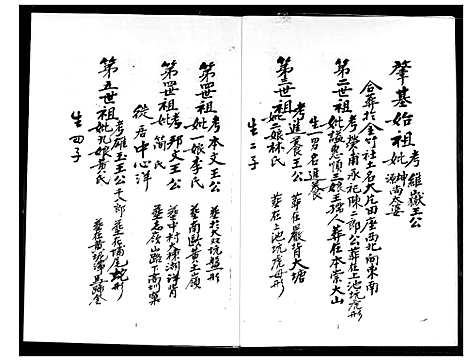 肇基始祖考維嶽王公
妣坤尚太婆
合葬於金竹社土名大片田座西北向東南
第二世祖考榮甫承祀陳二郎公葬在上池坑虎形
妣謚慈順三娘王孺人葬在本崇大山
生一男名進養
第三世祖考進養王公 葬在嚴背大塘
妣二娘林氏 葬在上池坑虎形
生二子
第四世祖考本文王公 葬於大双坑盤形
妣一娘李氏 葬南歐黃土嶺
第四世祖考邦文王公 葬中村大棟湖洋背
妣簡氏 葬名嶺山路下高圳
從居中心洋
第五世祖考雄玉王公千八郎 葬在橋尾蛇形
妣九娘黃氏 葬在黃坑
生四子